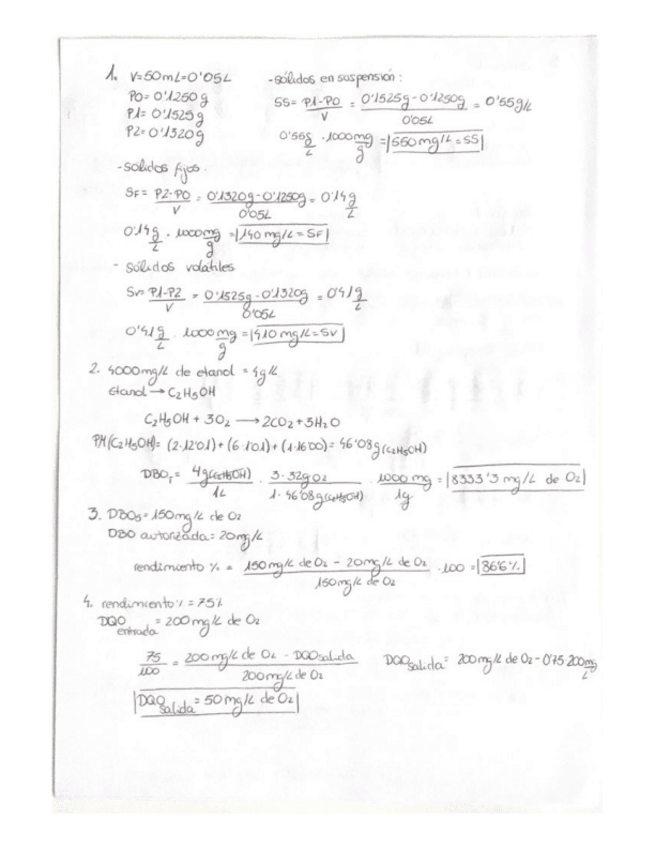 1. V=50mL=0'05L
P0=0'1250g
P1=0'1525g
P2=0'1320g
-sólidos en suspensión:
SS= P1-P0 / V = 0'1525g-0'1250g / 0'05L = 0'55g/L
0'55g/L · 1000mg/g = 550mg/L = SS
-sólidos fijos.
SF= P2-P0 / V = 0'1320g-0'1250g / 0'05L = 0'14g/L
0'14g/L · 1000mg/g = 140mg/L = SF
- sólidos volátiles
SV= P1-P2 / V = 0'1525g-0'1320g / 0'05L = 0'41g/L
0'41g/L · 1000mg/g = 410mg/L = SV
2. 4000mg/L de etanol = 4g/L
Etanol → C2H5OH
C2H5OH + 3O2 → 2CO2 + 3H2O
PM(C2H5OH)= (2·12'01)+(6·1'01)+(1·16'00)= 46'08g(C2H5OH)
DBOT= 4g(C2H5OH) / 1L · 3·32gO2 / 1·46'08g(C2H5OH) · 1000mg / 1g = 8333'3 mg/L de O2
3. DBO5=150mg/L de O2
DBO autorizada=20mg/L
rendimiento % = 150mg/L de O2 - 20mg/L de O2 / 150mg/L de O2 · 100 = 86'6%
4. rendimiento%=75%
DQO entrada = 200mg/L de O2
75/100 = 200mg/L de O2 - DQO salida / 200mg/L de O2
DQO salida = 200mg/L de O2-0'75·200mg/L
DQO salida = 50mg/L de O2